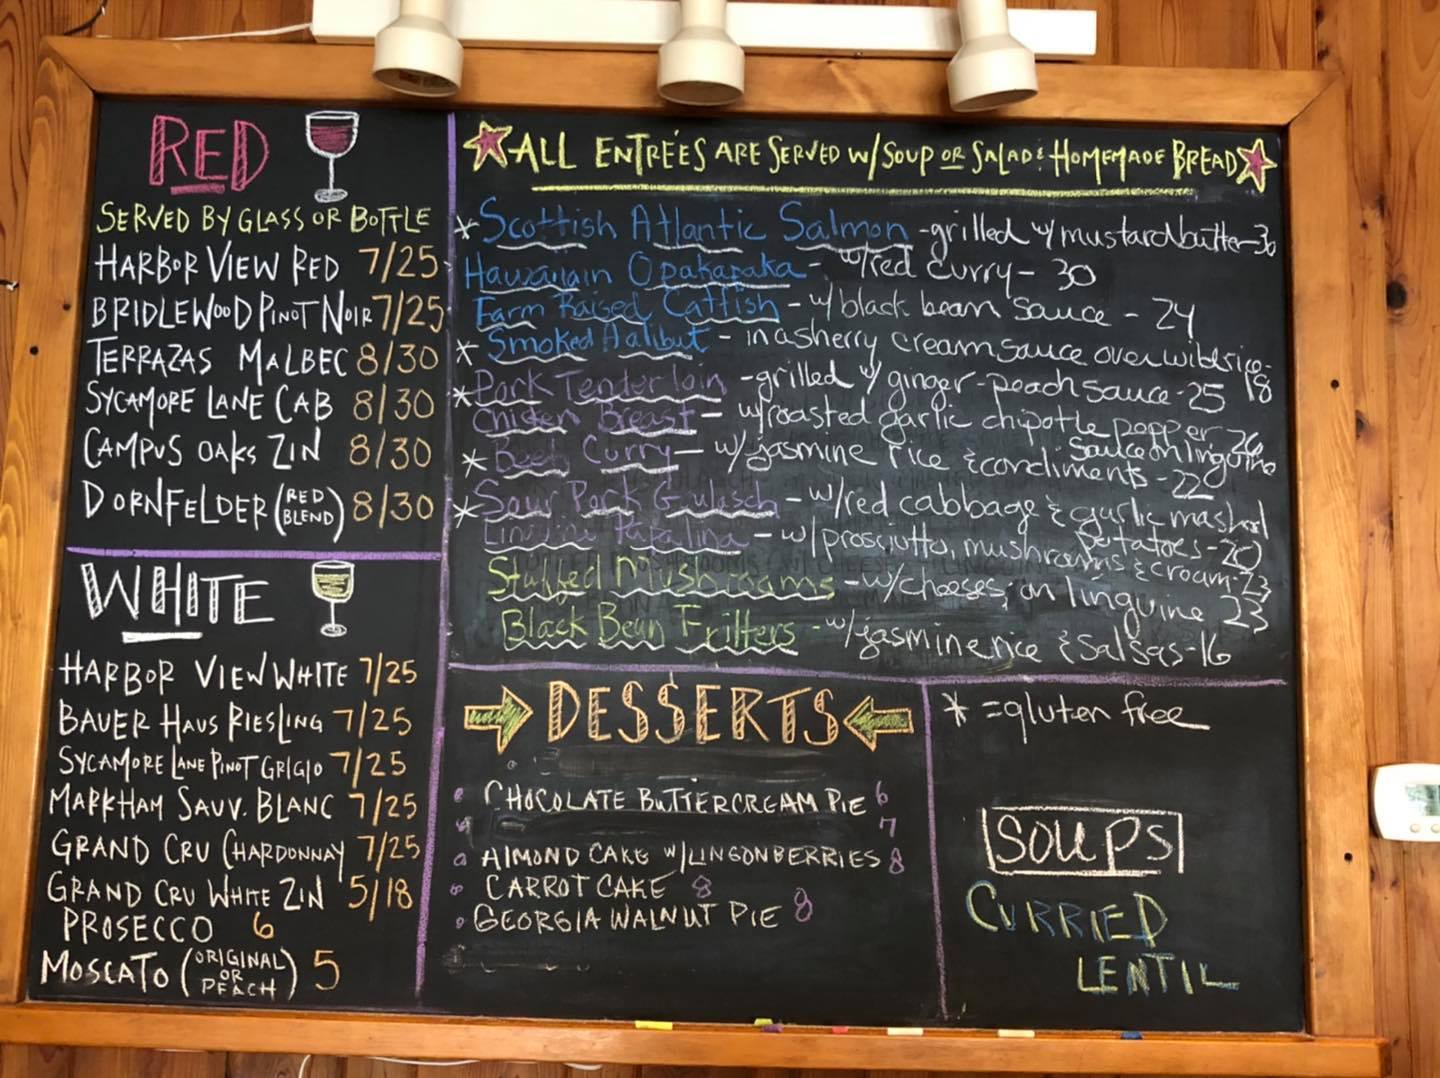 RED
SERVED BY GLASS OR BOTTLE
HARBOR VIEW RED 7/25
BRIDLEWOOD PINOT NOIR 7/25
TERRAZAS MALBEC 8/30
SYCAMORE LANE CAB 8/30
CAMPUS OAKS ZIN 8/30
DORNFELDER (RED BLEND) 8/30
WHITE
HARBOR VIEW WHITE 7/25
BAUER HAUS RIESLING 7/25
SYCAMORE LANE PINOT GRIGIO 7/25
MARKHAM SAUV. BLANC 7/25
GRAND CRU CHARDONNAY 7/25
GRAND CRU WHITE ZIN 5/18
PROSECCO 6
MOSCATO (ORIGINAL OR PEACH) 5
ALL ENTRÉES ARE SERVED W/SOUP OR SALAD & HOMEMADE BREAD
* Scottish Atlantic Salmon - grilled w/ mustard butter - 30
Hawaiiain Opakapaka - w/red curry - 30
Farm Raised Catfish - w/ black bean sauce - 24
* Smoked Halibut - in a sherry cream sauce over wild rice - 18
* Pork Tenderloin - grilled w/ ginger-peach sauce - 25
Chicken Breast - w/roasted garlic chipotle pepper
Sauce on linguine
* Beef Curry - w/ jasmine rice & condiments - 22
* Sour Pork Gulasch - w/red cabbage & garlic mashed
potatoes - 20
Linguine Papalina - w/prosciutto, mushrooms & cream - 23
Stuffed Mushrooms - w/cheeses, on linguine 23
Black Bean Fritters - w/jasmine rice & Salsas - 16
DESSERTS
CHOCOLATE BUTTERCREAM PIE 6
7
ALMOND CAKE w/LINGONBERRIES 8
CARROT CAKE 8
GEORGIA WALNUT PIE 8
* = gluten free
SOUPS
CURRIED
LENTIL